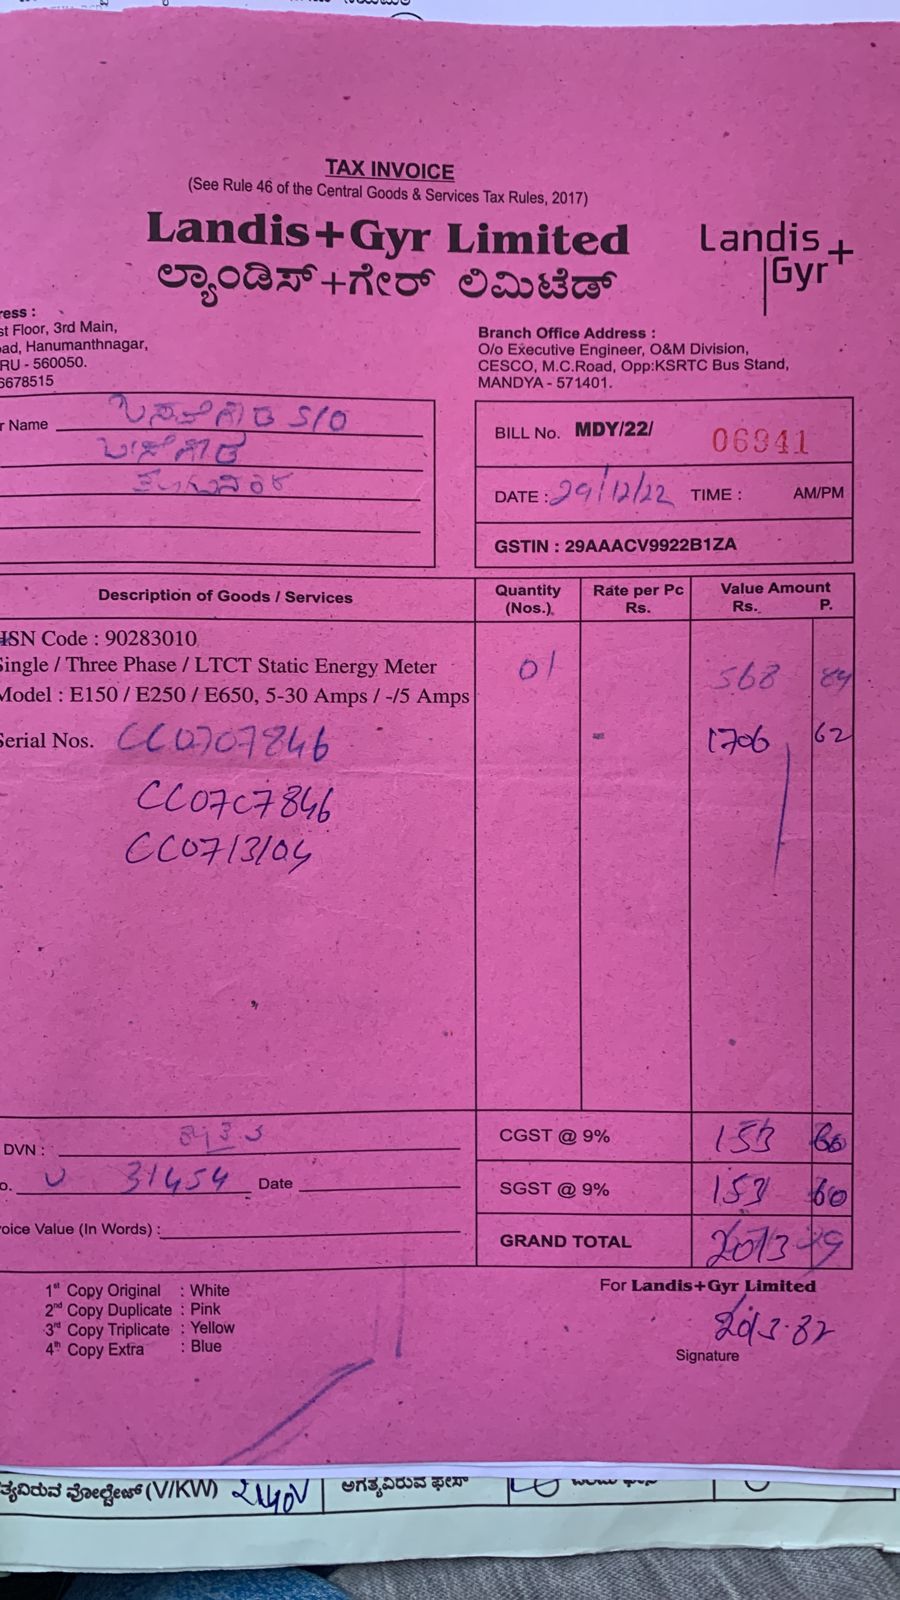 TAX INVOICE
(See Rule 46 of the Central Goods & Services Tax Rules, 2017)
Landis+Gyr Limited
ಲ್ಯಾಂಡಿಸ್+ಗೇರ್ ಲಿಮಿಟೆಡ್
Landis+
Gyr
ress :
st Floor, 3rd Main,
ad, Hanumanthnagar,
RU - 560050.
6678515
Branch Office Address :
O/o Executive Engineer, O&M Division,
CESCO, M.C.Road, Opp:KSRTC Bus Stand,
MANDYA - 571401.
r Name S/O
BILL No. MDY/22/ 06941
DATE : 29/12/22 TIME : AM/PM
GSTIN : 29AAACV9922B1ZA
Description of Goods / Services Quantity (Nos.) Rate per Pc Rs. Value Amount Rs. P.
HSN Code : 90283010
Single / Three Phase / LTCT Static Energy Meter 01 568 84
Model : E150 / E250 / E650, 5-30 Amps / -/5 Amps
Serial Nos. CC0707846 1706 62
CC0707846
CC0713104
DVN :
CGST @ 9% 153 60
o. U 31454 Date
SGST @ 9% 153 60
oice Value (In Words) :
GRAND TOTAL 2013
1st Copy Original : White
2nd Copy Duplicate : Pink
3rd Copy Triplicate : Yellow
4th Copy Extra : Blue
For Landis+Gyr Limited
2013.82
Signature
ತ್ಯವಿರುವ ವೋಲ್ಟೇಜ್ (V/KW) 240V ಅಗತ್ಯವಿರುವ ಫೇಸ್